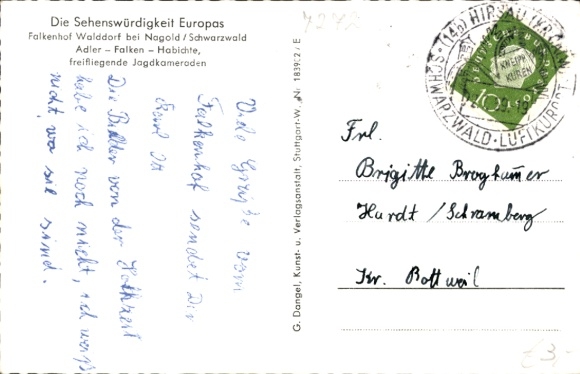 Die Sehenswürdigkeit Europas
Falkenhof Walddorf bei Nagold / Schwarzwald
Adler – Falken – Habichte,
freifliegende Jagdkameraden
Viele Grüße vom
Falkenhof sendet Dir
Die Bilder von der Hochzeit
habe ich noch nicht, ich weiß
nicht, wo sie sind.
G. Dangel, Kunst- u. Verlagsanstalt, Stuttgart-W. Nr. 18392/E
(14b) HIRSAU
SCHWARZWALD · LUFTKURORT
KNEIPP
KUREN
10
Frl.
Brigitte Broghamer
Hardt / Schramberg
Kr. Rottweil
£3-